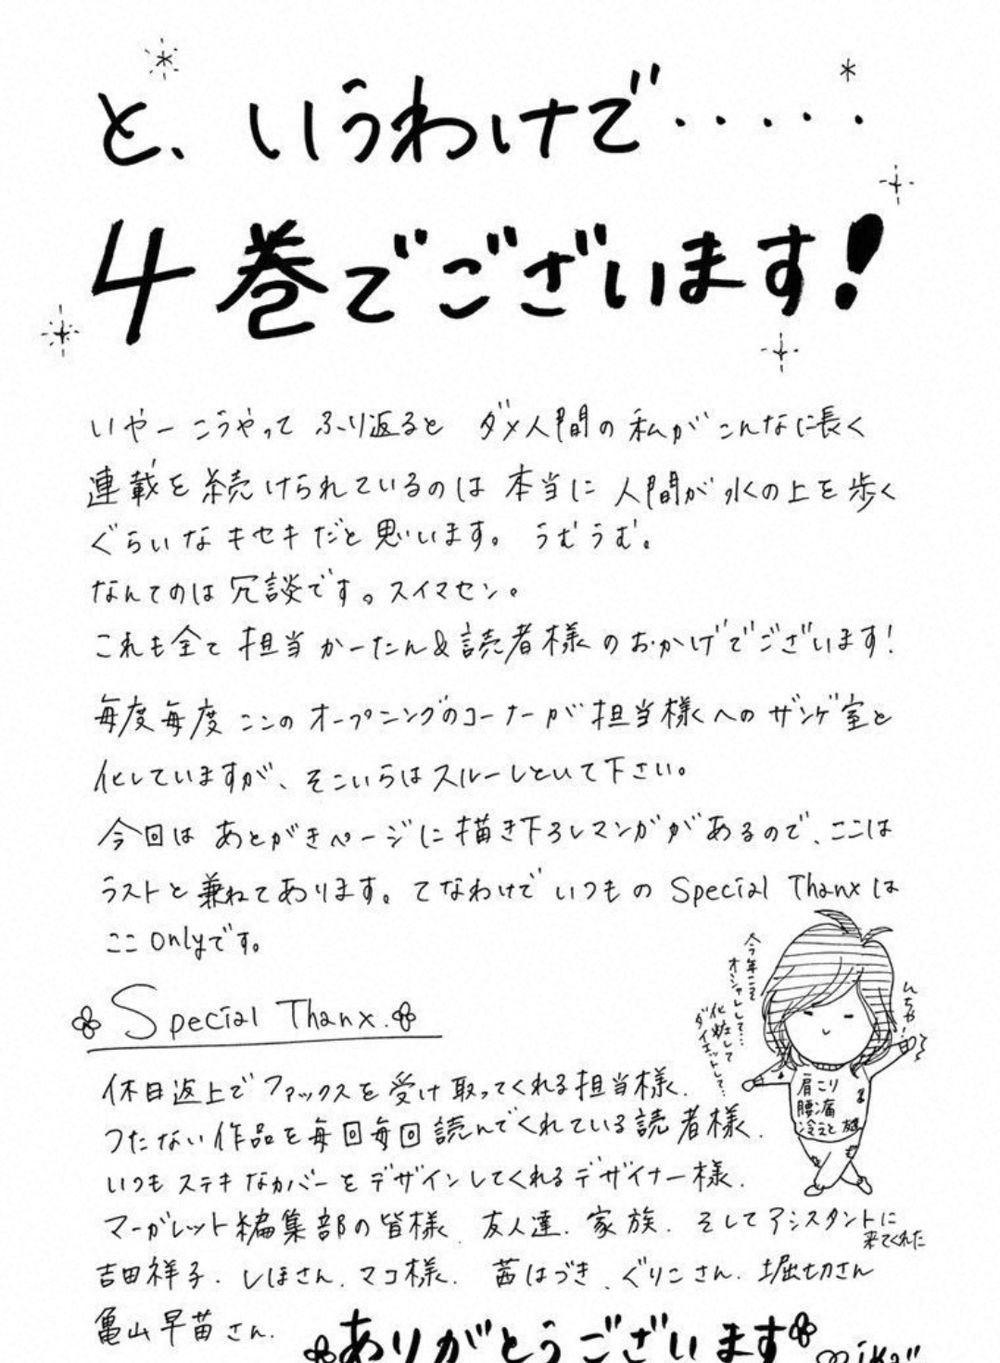 と、いうわけで・・・・・
4巻でございます!
いやー こうやって ふり返ると ダメ人間の私がこんなに長く
連載を続けられているのは本当に人間が水の上を歩く
ぐらいなキセキだと思います。うむうむ。
なんてのは冗談です。スイマセン。
これも全て担当かーたん&読者様のおかげでございます!
毎度毎度ここのオープニングのコーナーが担当様へのザンゲ室と
化していますが、そこいらはスルーしといて下さい。
今回はあとがきページに描き下ろしマンガがあるので、ここは
ラストと兼ねてあります。てなわけでいつものSpecial Thanxは
ここonlyです。
Special Thanx.
今年こそ
オシャレして…
化粧して
ダイエットして…
んちゃ!
肩こり
腰痛
冷えと
休日返上でファックスを受け取ってくれる担当様.
つたない作品を毎回毎回読んでくれている読者様.
いつもステキなカバーをデザインしてくれるデザイナー様.
マーガレット編集部の皆様. 友人達. 家族. そしてアシスタントに
来てくれた
吉田祥子. しほさん. マコ様. 茜はづき. ぐりこさん. 堀切さん
亀山早苗さん.
ありがとうございます